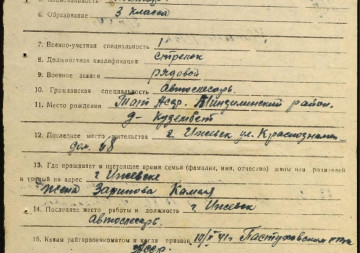 6. Образование 3 класса
7. Военно-учетная специальность 1
8. Должностная квалификация стрелок
9. Военное звание рядовой
10. Гражданская специальность Автослесарь.
11. Место рождения Тат. Асср. Мензелинский район.
д. Кузембет
12. Последнее место жительства г. Ижевск ул. Краснознам
дом. 68
13. Где проживает в настоящее время семья (фамилия, имя, отчество) жены или родителей
и точный их адрес г. Ижевске
жена Зарипова Камил
14. Последнее место работы и должность г. Ижевск
Автослесарь.
15. Каким райгорвоенкоматом и когда призван 10/X 41г. Пастуховским